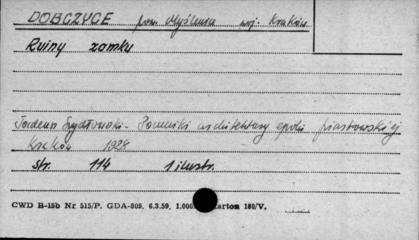 DOBCZYCE pow. Myślenice woj. Kraków
Ruiny zamku
Tadeusz Szydłowski - Pomniki architektury epoki piastowskiej
Kraków 1928
str. 114 1 ilustr.
CWD B-15b Nr 515/P. GDA-809. 6.3.59. 1.000 karton 180/V.